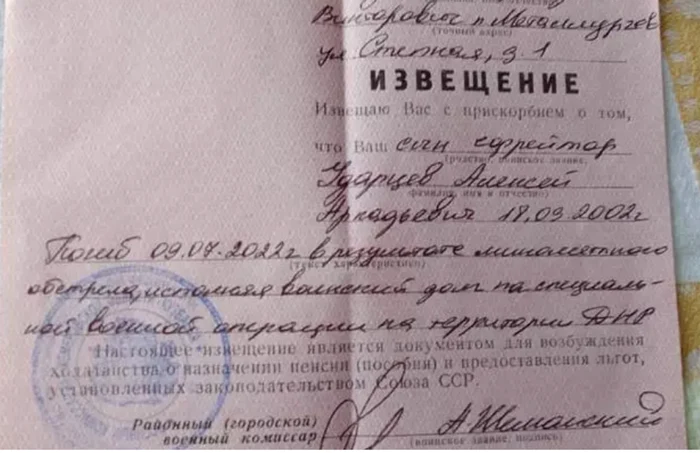 Викторович п. Металлургов
(точный адрес)
ул. Степная, д. 1
ИЗВЕЩЕНИЕ
Извещаю Вас с прискорбием о том,
что Ваш сын ефрейтор
(родство, воинское звание,
Ударцев Алексей
фамилия, имя и отчество)
Аркадьевич 18.09.2002г
Погиб 09.07.2022г в результате минометного
(текст характеристики)
обстрела, исполняя воинский долг на специаль-
ной военной операции на территории ДНР
Настоящее извещение является документом для возбуждения
ходатайства о назначении пенсии (пособия) и предоставления льгот,
установленных законодательством Союза ССР.
Районный (городской)
военный комиссар
(воинское звание, подпись)